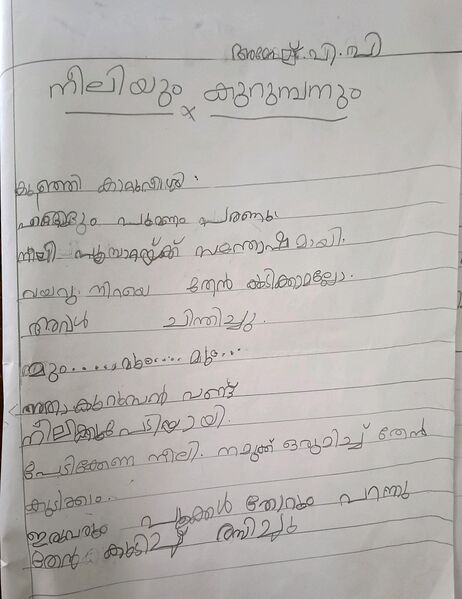 പി.വി
നീലിയും കുറുമ്പനും
x
നീലി പൂമ്പാറ്റയ്ക്ക് സന്തോഷമായി.
വയറു നിറയെ തേൻ കുടിക്കാമല്ലോ.
അവൾ ചിന്തിച്ചു.
മൂം......മൂം.... മൂം...
അതാ കുറുമ്പൻ വണ്ട്
നീലിക്കു പേടിയായി.
പേടിക്കേണ്ട നീലി. നമുക്ക് ഒരുമിച്ച് തേൻ
കുടിക്കാം..
ഇരുവരും പൂക്കൾ തോറും പറന്നു
തേൻ കുടിച്ച് രസിച്ചു